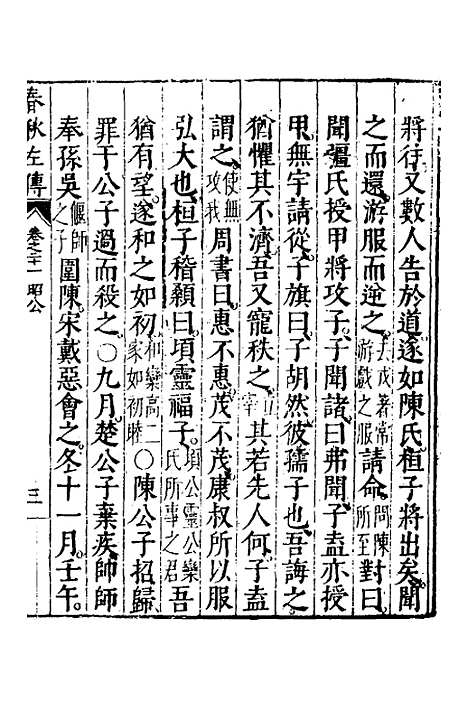 將往又數人告於道遂如陳氏桓子將出矣聞
之而還游服而逆之去戎著常游戲之服請命問陳所至對曰
聞彊氏授甲將攻子子聞諸曰弗聞子盍亦授
甲無宇請從子旗曰子胡然彼孺子也吾誨之
猶懼其不濟吾又寵秩之立宰其若先人何子盍
謂之使無攻我周書曰惠不惠茂不茂康叔所以服
弘大也桓子稽顙曰頃靈福子頃公靈公欒氏所事之君吾
猶有望遂和之如初和欒高二家如初睦○陳公子招歸
罪于公子過而殺之○九月楚公子棄疾帥師
奉孫吳偃師之子圍陳宋戴惡會之冬十一月壬午
春秋左傳 卷之二十一 昭公 三